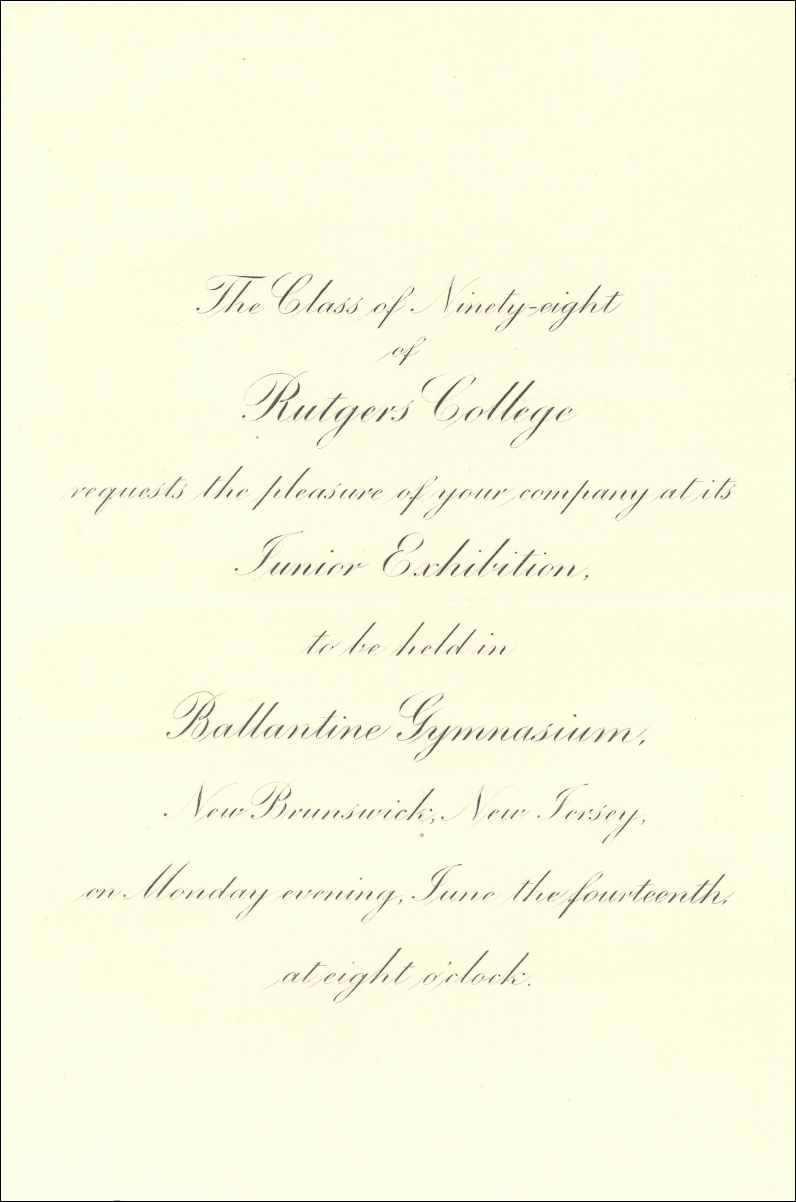 The Class of Ninety-eight
of
Rutgers College
requests the pleasure of your company at its
Junior Exhibition,
to be held in
Ballantine Gymnasium,
New Brunswick, New Jersey,
on Monday evening, June the fourteenth,
at eight o'clock.